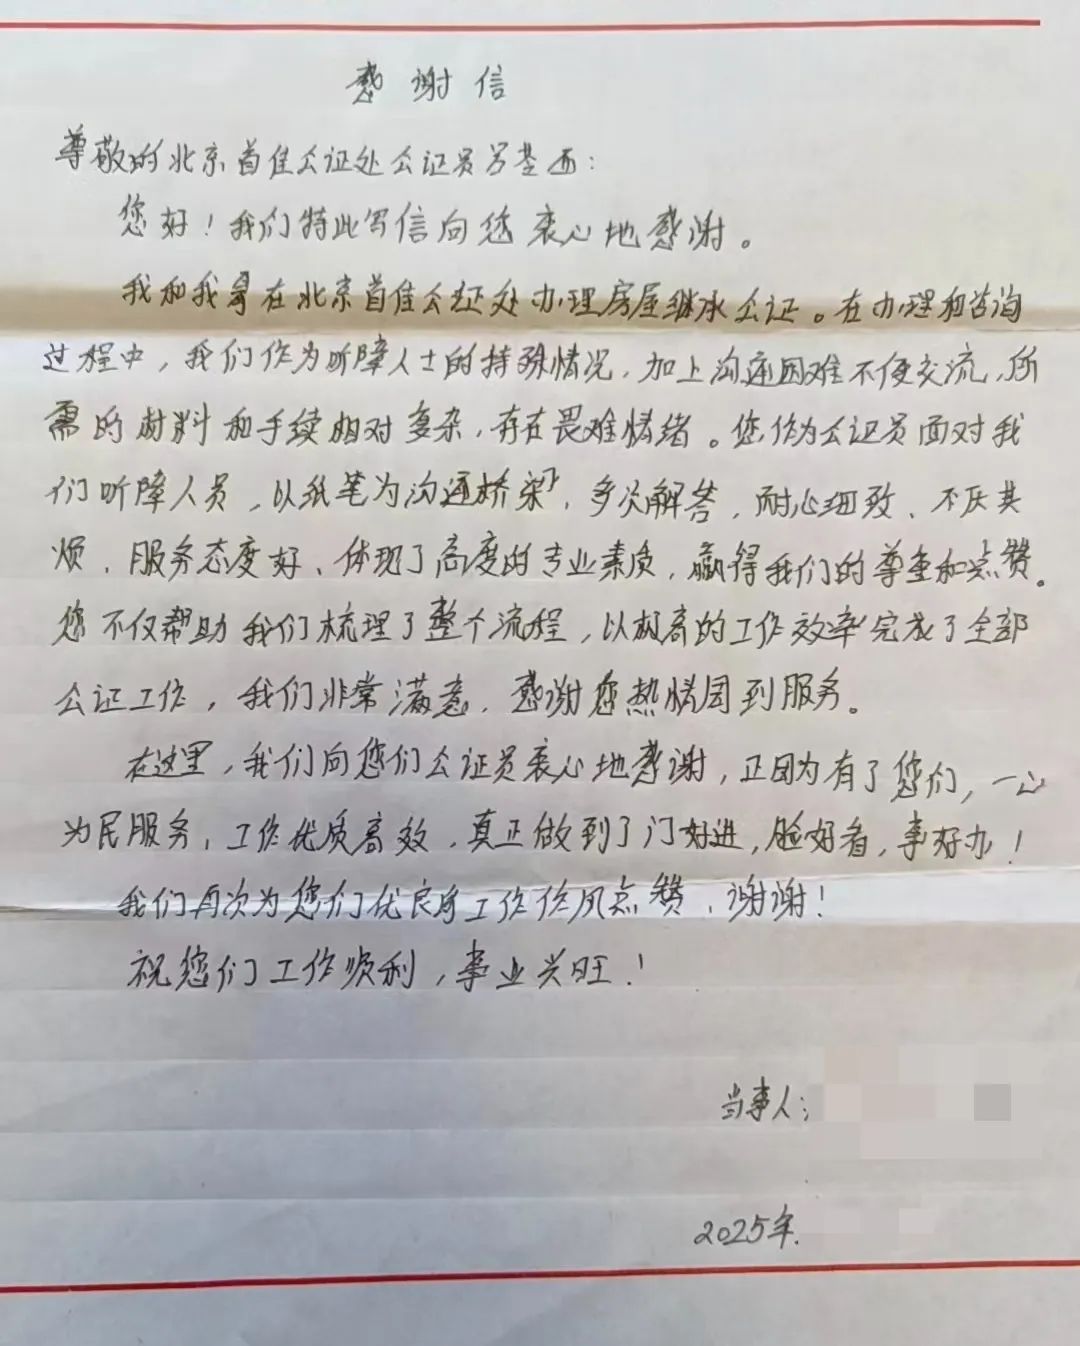 感谢信
尊敬的北京首佳公证处公证员吕楚西：
您好！我们特此写信向您衷心地感谢。
我和我哥在北京首佳公证处办理房屋继承公证。在办理和咨询
过程中，我们作为听障人士的特殊情况，加上沟通困难不便交流，所
需的材料和手续相对复杂，存在畏难情绪。您作为公证员面对我
们听障人员，以纸笔为沟通桥梁，多次解答，耐心细致、不厌其
烦、服务态度好、体现了高度的专业素质，赢得我们的尊重和点赞。
您不仅帮助我们梳理了整个流程，以极高的工作效率完成了全部
公证工作，我们非常满意，感谢您热情周到服务。
在这里，我们向您们公证员衷心地感谢，正因为有了您们，一心
为民服务，工作优质高效，真正做到了门好进，脸好看，事好办！
我们再次为您们优良的工作作风点赞、谢谢！
祝您们工作顺利，事业兴旺！
当事人：
2025年.